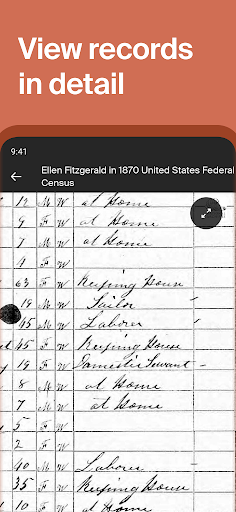 View records
in detail
9:41
Ellen Fitzgerald in 1870 United States Federal
Census
12 M W at Home
9 F W at Home
7 M W at Home
4 F W
63 F W Keeping House
19 M " Sailor
45 M " Laborer
45 F W Keeping House
19 F W Domestic Servant
8 M W at Home
7 M W at Home
5 F W
2 F W
40 M W Laborer
35 F W Keeping House
10 F W at Home